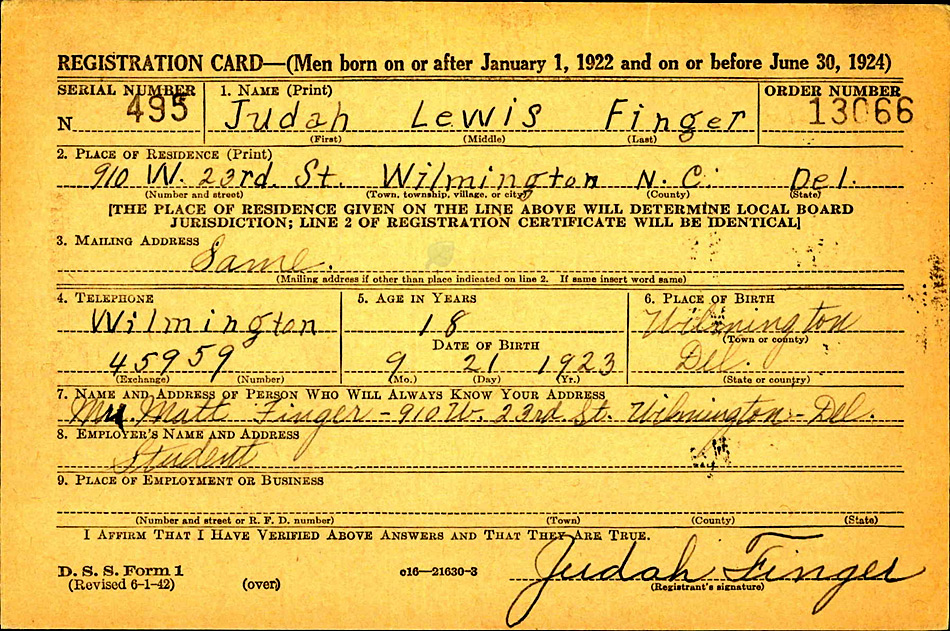 REGISTRATION CARD—(Men born on or after January 1, 1922 and on or before June 30, 1924)
SERIAL NUMBER 1. NAME (Print) ORDER NUMBER
N 495 Judah Lewis Finger 13066
(First) (Middle) (Last)
2. PLACE OF RESIDENCE (Print)
910 W. 23rd. St. Wilmington N. C. Del.
(Number and street) (Town, township, village, or city) (County) (State)
[THE PLACE OF RESIDENCE GIVEN ON THE LINE ABOVE WILL DETERMINE LOCAL BOARD
JURISDICTION; LINE 2 OF REGISTRATION CERTIFICATE WILL BE IDENTICAL]
3. MAILING ADDRESS
Same.
(Mailing address if other than place indicated on line 2. If same insert word same)
4. TELEPHONE 5. AGE IN YEARS 6. PLACE OF BIRTH
Wilmington 18 Wilmington
(Town or county)
DATE OF BIRTH
45959 9 21 1923 Del.
(Exchange) (Number) (Mo.) (Day) (Yr.) (State or country)
7. NAME AND ADDRESS OF PERSON WHO WILL ALWAYS KNOW YOUR ADDRESS
Mrs. Matt Finger - 910 W. 23rd St. Wilmington - Del.
8. EMPLOYER'S NAME AND ADDRESS
Student
9. PLACE OF EMPLOYMENT OR BUSINESS
(Number and street or R. F. D. number) (Town) (County) (State)
I AFFIRM THAT I HAVE VERIFIED ABOVE ANSWERS AND THAT THEY ARE TRUE.
D. S. S. Form 1 c16—21630-3 Judah Finger
(Revised 6-1-42) (over) (Registrant's signature)